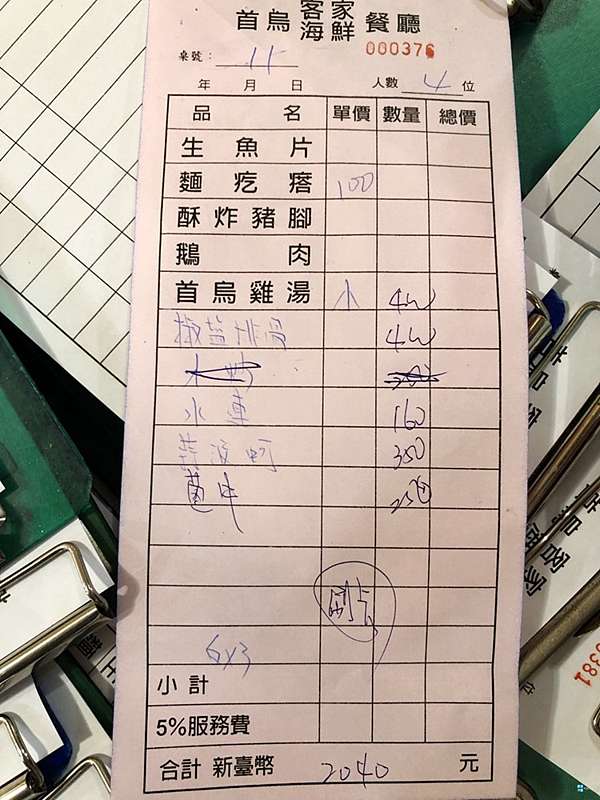 首烏客家海鮮餐廳
000376
桌號：11
年 月 日 人數 4 位
品名 單價 數量 總價
生魚片
麵疙瘩 100
酥炸豬腳
鵝肉
首烏雞湯 小 400
椒鹽排骨 400
水蓮 160
350
250
6x3
小計
5%服務費
合計 新臺幣 2040 元
0381